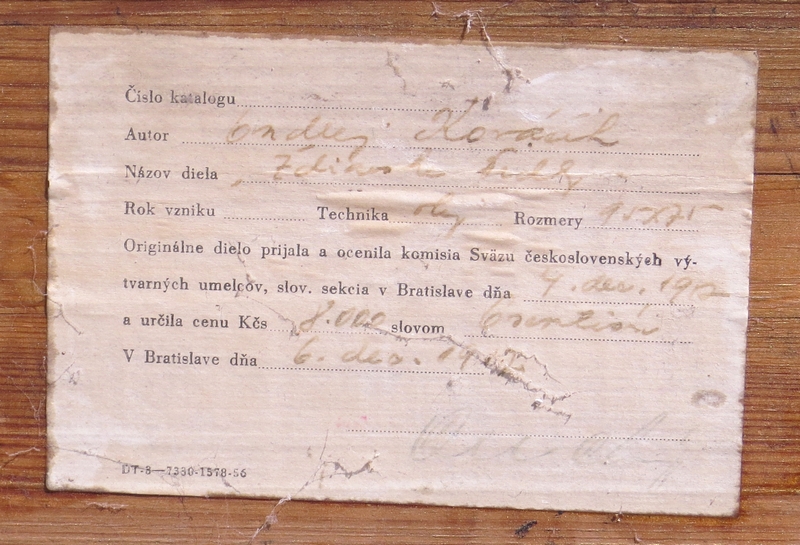 Číslo katalogu
Autor Ondrej Kováčik
Názov diela
Rok vzniku Technika olej Rozmery 95x75
Originálne dielo prijala a ocenila komisia Sväzu československých vý-
tvarných umelcov, slov. sekcia v Bratislave dňa 4. dec.
a určila cenu Kčs 8.000 slovom
V Bratislave dňa 6. dec.
DT-8—7330-1578-56